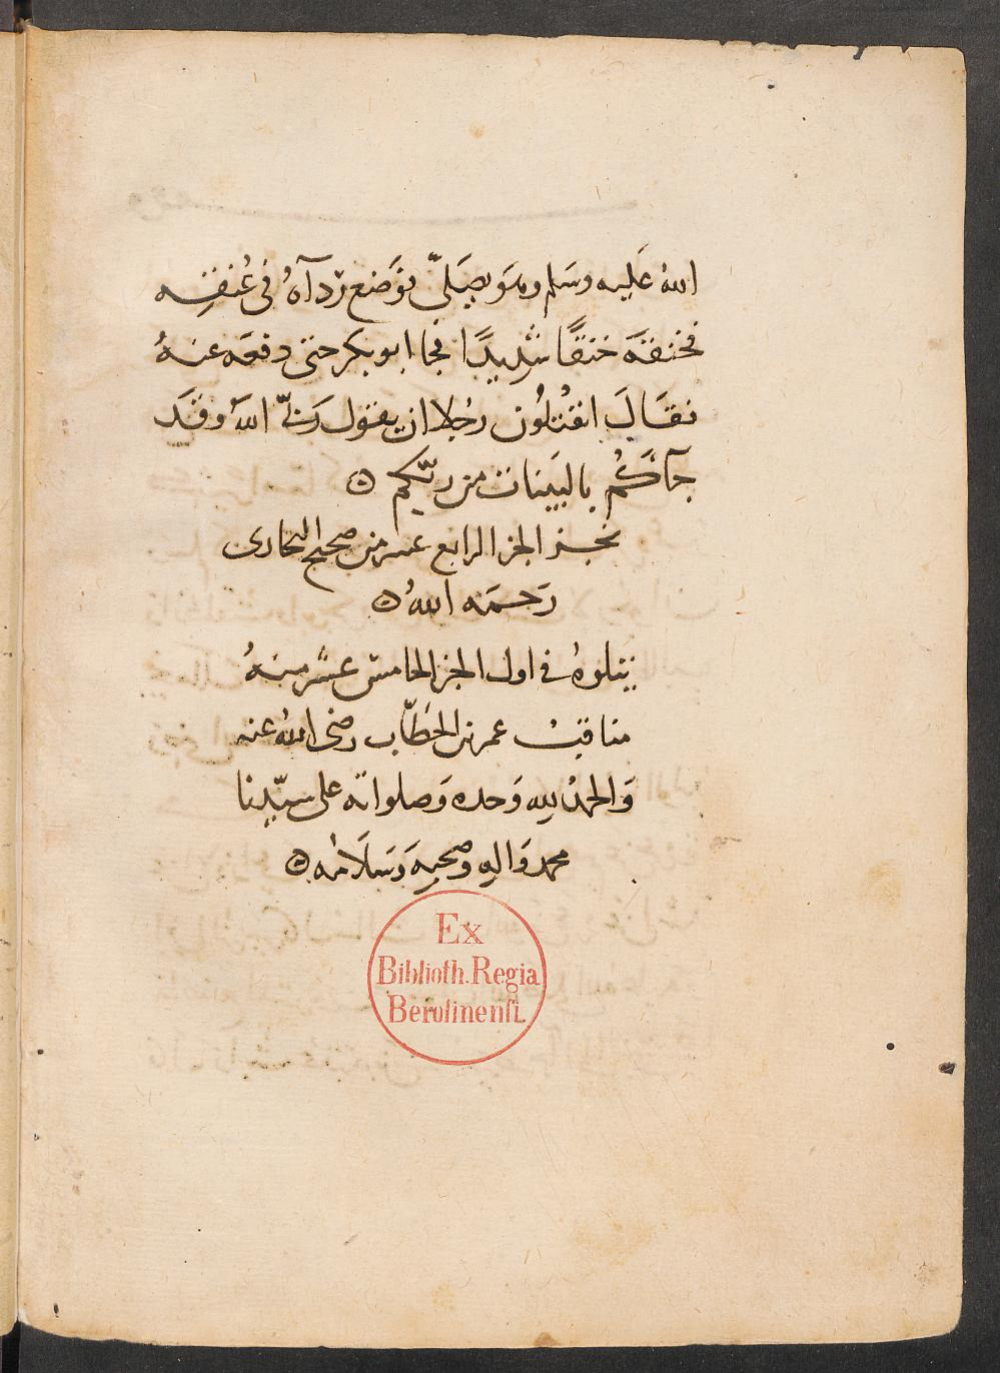 الله عَليه وسَلم وهوَ يصَلّي فوَضع ردآهُ في عُنقِه
فخنقهَ خنقًا شدِيدًا فجا ابو بكر حتى دفعَه عنهُ
فقَالَ اتقتُلُون رجُلا ان يقول رَبّي اللهُ وقَد
جآكُم بالبَيّنات من ربّكم ۞
نجز الجز الرابع عشر من صحيح البخارى
رَحمَه اللهُ ۞
يتلوهُ في اول الجز الخامس عشر منهُ
مناقبُ عمر بن الخطّاب رضي اللهُ عنه
وَالحمدُ لِله وَحده وَصلواته على سيّدنا
محمد وَالِه وصَحبِهِ وَسَلَامُه ۞
Ex
Biblioth. Regia
Berolinensi.